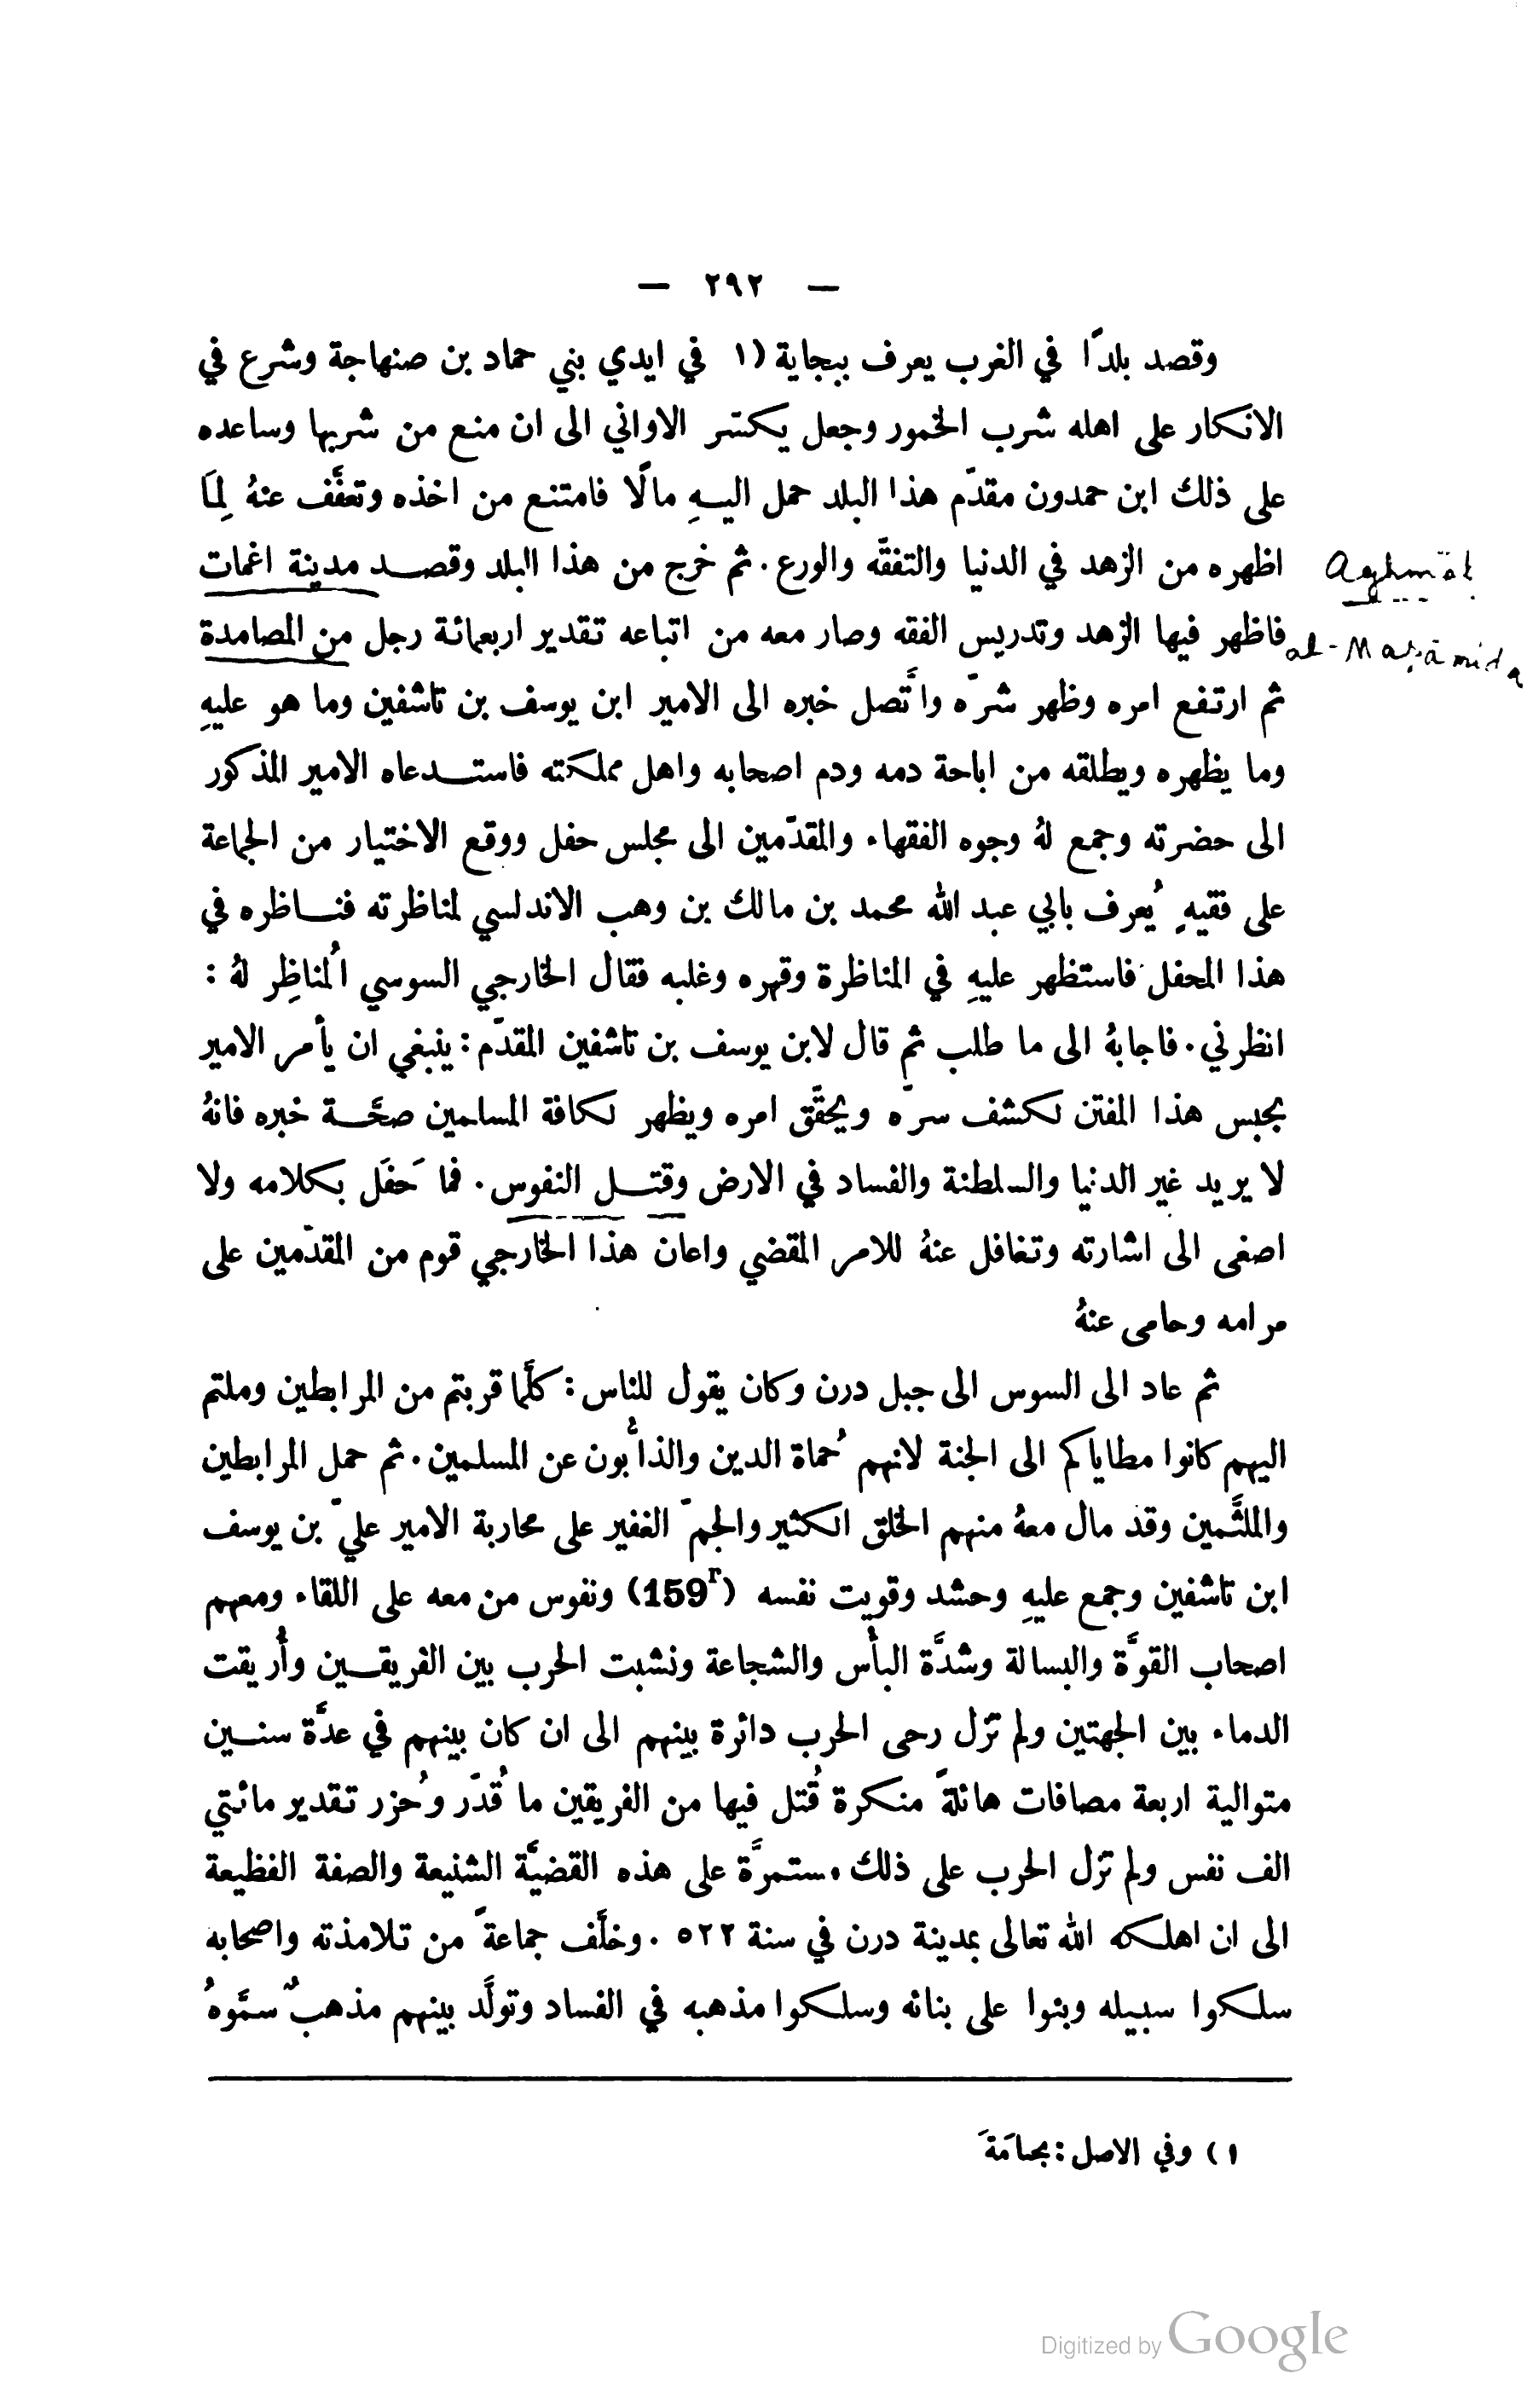 — ٢٩٢ —
وقصد بلدًا في الغرب يعرف ببجاية (١ في ايدي بني حماد بن صنهاجة وشرع في
الانكار على اهله شرب الخمور وجعل يكسّر الاواني الى ان منع من شربها وساعده
على ذلك ابن حمدون مقدّم هذا البلد حمل اليهِ مالًا فامتنع من اخذه وتعفَّف عنهُ لِمَا
اظهره من الزهد في الدنيا والتفقّه والورع. ثم خرج من هذا البلد وقصد مدينة اغمات
Aghmāt
فاظهر فيها الزهد وتدريس الفقه وصار معه من اتباعه تقدير اربعمائة رجل من المصامدة
al-Maṣāmida
ثم ارتفع امره وظهر شرّه واتَّصل خبره الى الامير ابن يوسف بن تاشفين وما هو عليهِ
وما يظهره ويطلقه من اباحة دمه ودم اصحابه واهل مملكته فاستدعاه الامير المذكور
الى حضرته وجمع لهُ وجوه الفقهاء والمقدّمين الى مجلس حفل ووقع الاختيار من الجماعة
على فقيهٍ يُعرف بابي عبد الله محمد بن مالك بن وهب الاندلسي لمناظرته فناظره في
هذا المحفل فاستظهر عليهِ في المناظرة وقهره وغلبه فقال الخارجي السوسي المُناظِر لهُ :
انظرني. فاجابهُ الى ما طلب ثم قال لابن يوسف بن تاشفين المقدّم: ينبغي ان يأمر الامير
بحبس هذا المفتن لكشف سرّه ويحقَّق امره ويظهر لكافة المسلمين صحَّة خبره فانهُ
لا يريد غير الدنيا والسلطنة والفساد في الارض وقتل النفوس. فما حَفَل بكلامه ولا
اصغى الى اشارته وتغافل عنهُ للامر المقضي واعان هذا الخارجي قوم من المقدّمين على
مرامه وحامى عنهُ
ثم عاد الى السوس الى جبل درن وكان يقول للناس: كلَّما قربتم من المرابطين وملتم
اليهم كانوا مطاياكم الى الجنة لانهم حُماة الدين والذابُّون عن المسلمين. ثم حمل المرابطين
والملثَّمين وقد مال معهُ منهم الخلق الكثير والجمّ الغفير على محاربة الامير عليّ بن يوسف
ابن تاشفين وجمع عليهِ وحشد وقويت نفسه (159r) ونفوس من معه على اللقاء ومعهم
اصحاب القوَّة والبسالة وشدَّة البأس والشجاعة ونشبت الحرب بين الفريقين وأُريقت
الدماء بين الجهتين ولم تزل رحى الحرب دائرة بينهم الى ان كان بينهم في عدَّة سنين
متوالية اربعة مصافات هائلة منكرة قُتل فيها من الفريقين ما قُدّر وحُزر تقدير مائتي
الف نفس ولم تزل الحرب على ذلك مستمرَّة على هذه القضيَّة الشنيعة والصفة الفظيعة
الى ان اهلكه الله تعالى بمدينة درن في سنة ٥٢٢ . وخلَّف جماعةً من تلامذته واصحابه
سلكوا سبيله وبنوا على بنائه وسلكوا مذهبه في الفساد وتولَّد بينهم مذهبٌ سمَّوهُ
١) وفي الاصل:
Digitized by Google